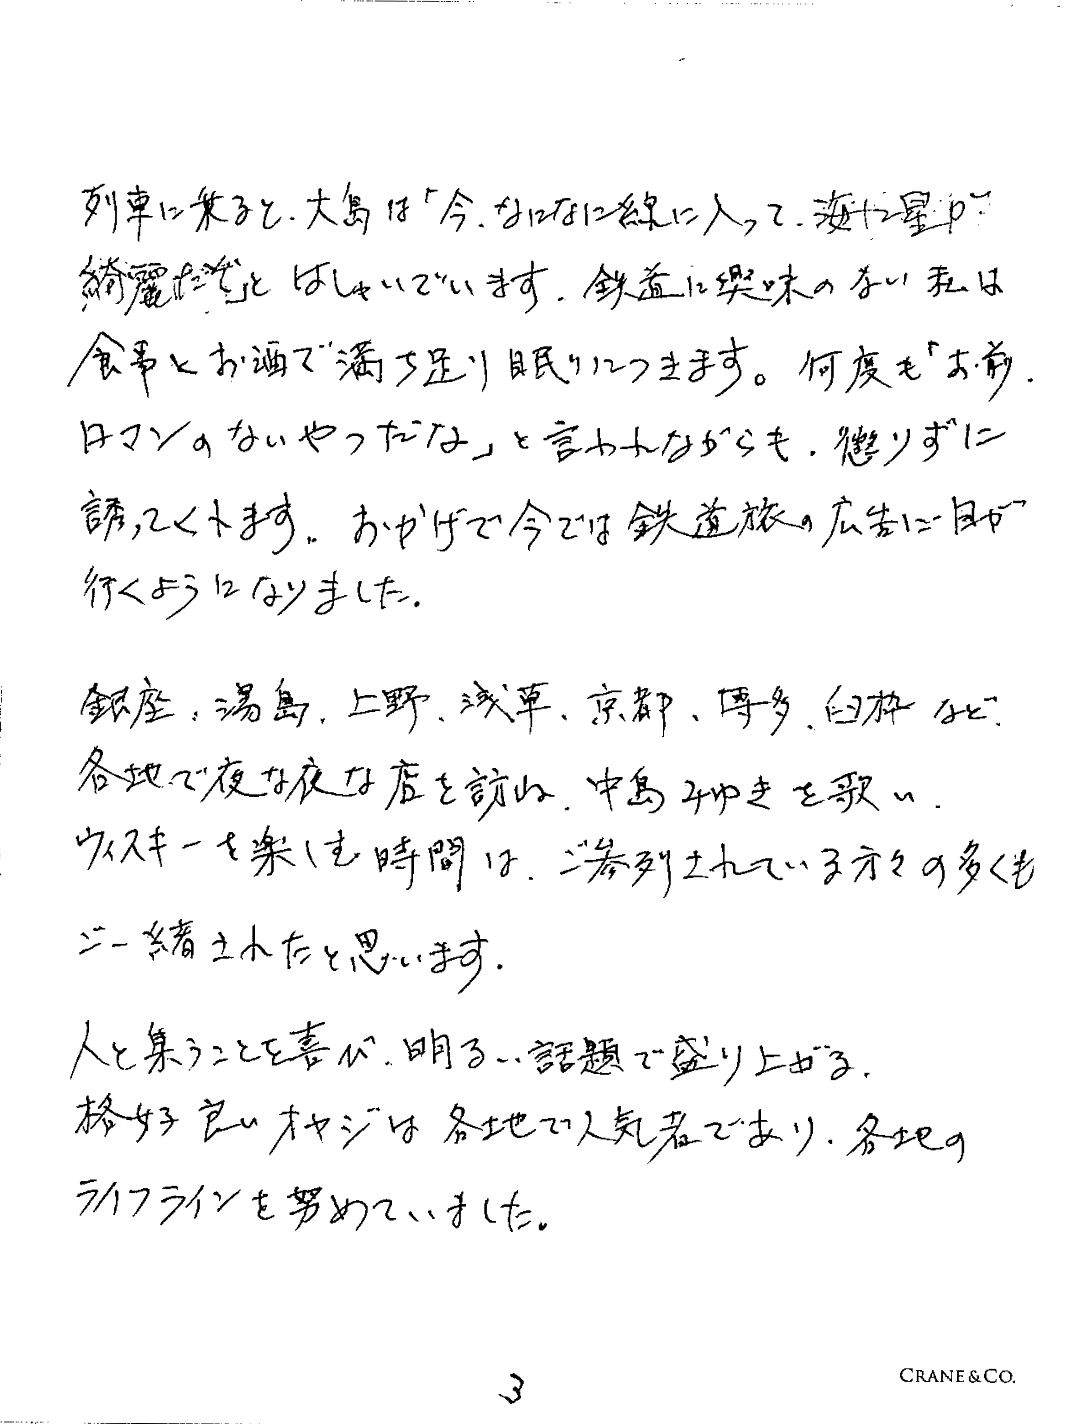 列車に乗ると、大島は「今、なになに線に入って、海と星が
綺麗だぞ」と はしゃいでいます。鉄道に興味のない私は
食事とお酒で満ち足り眠りにつきます。何度も「お前、
ロマンのないやつだな」と言われながらも、懲りずに
誘ってくれます。おかげで今では鉄道旅の広告に目が
行くようになりました。
銀座、湯島、上野、浅草、京都、博多、臼杵 など、
各地で夜な夜な店を訪ね、中島みゆきを歌い、
ウィスキーを楽しむ時間は、ご参列されている方々の多くも
ご一緒されたと思います。
人と集うことを喜び、明るい話題で盛り上がる、
格好良いオヤジは各地で人気者であり、各地の
ライフラインを努めていました。
3
CRANE & CO.